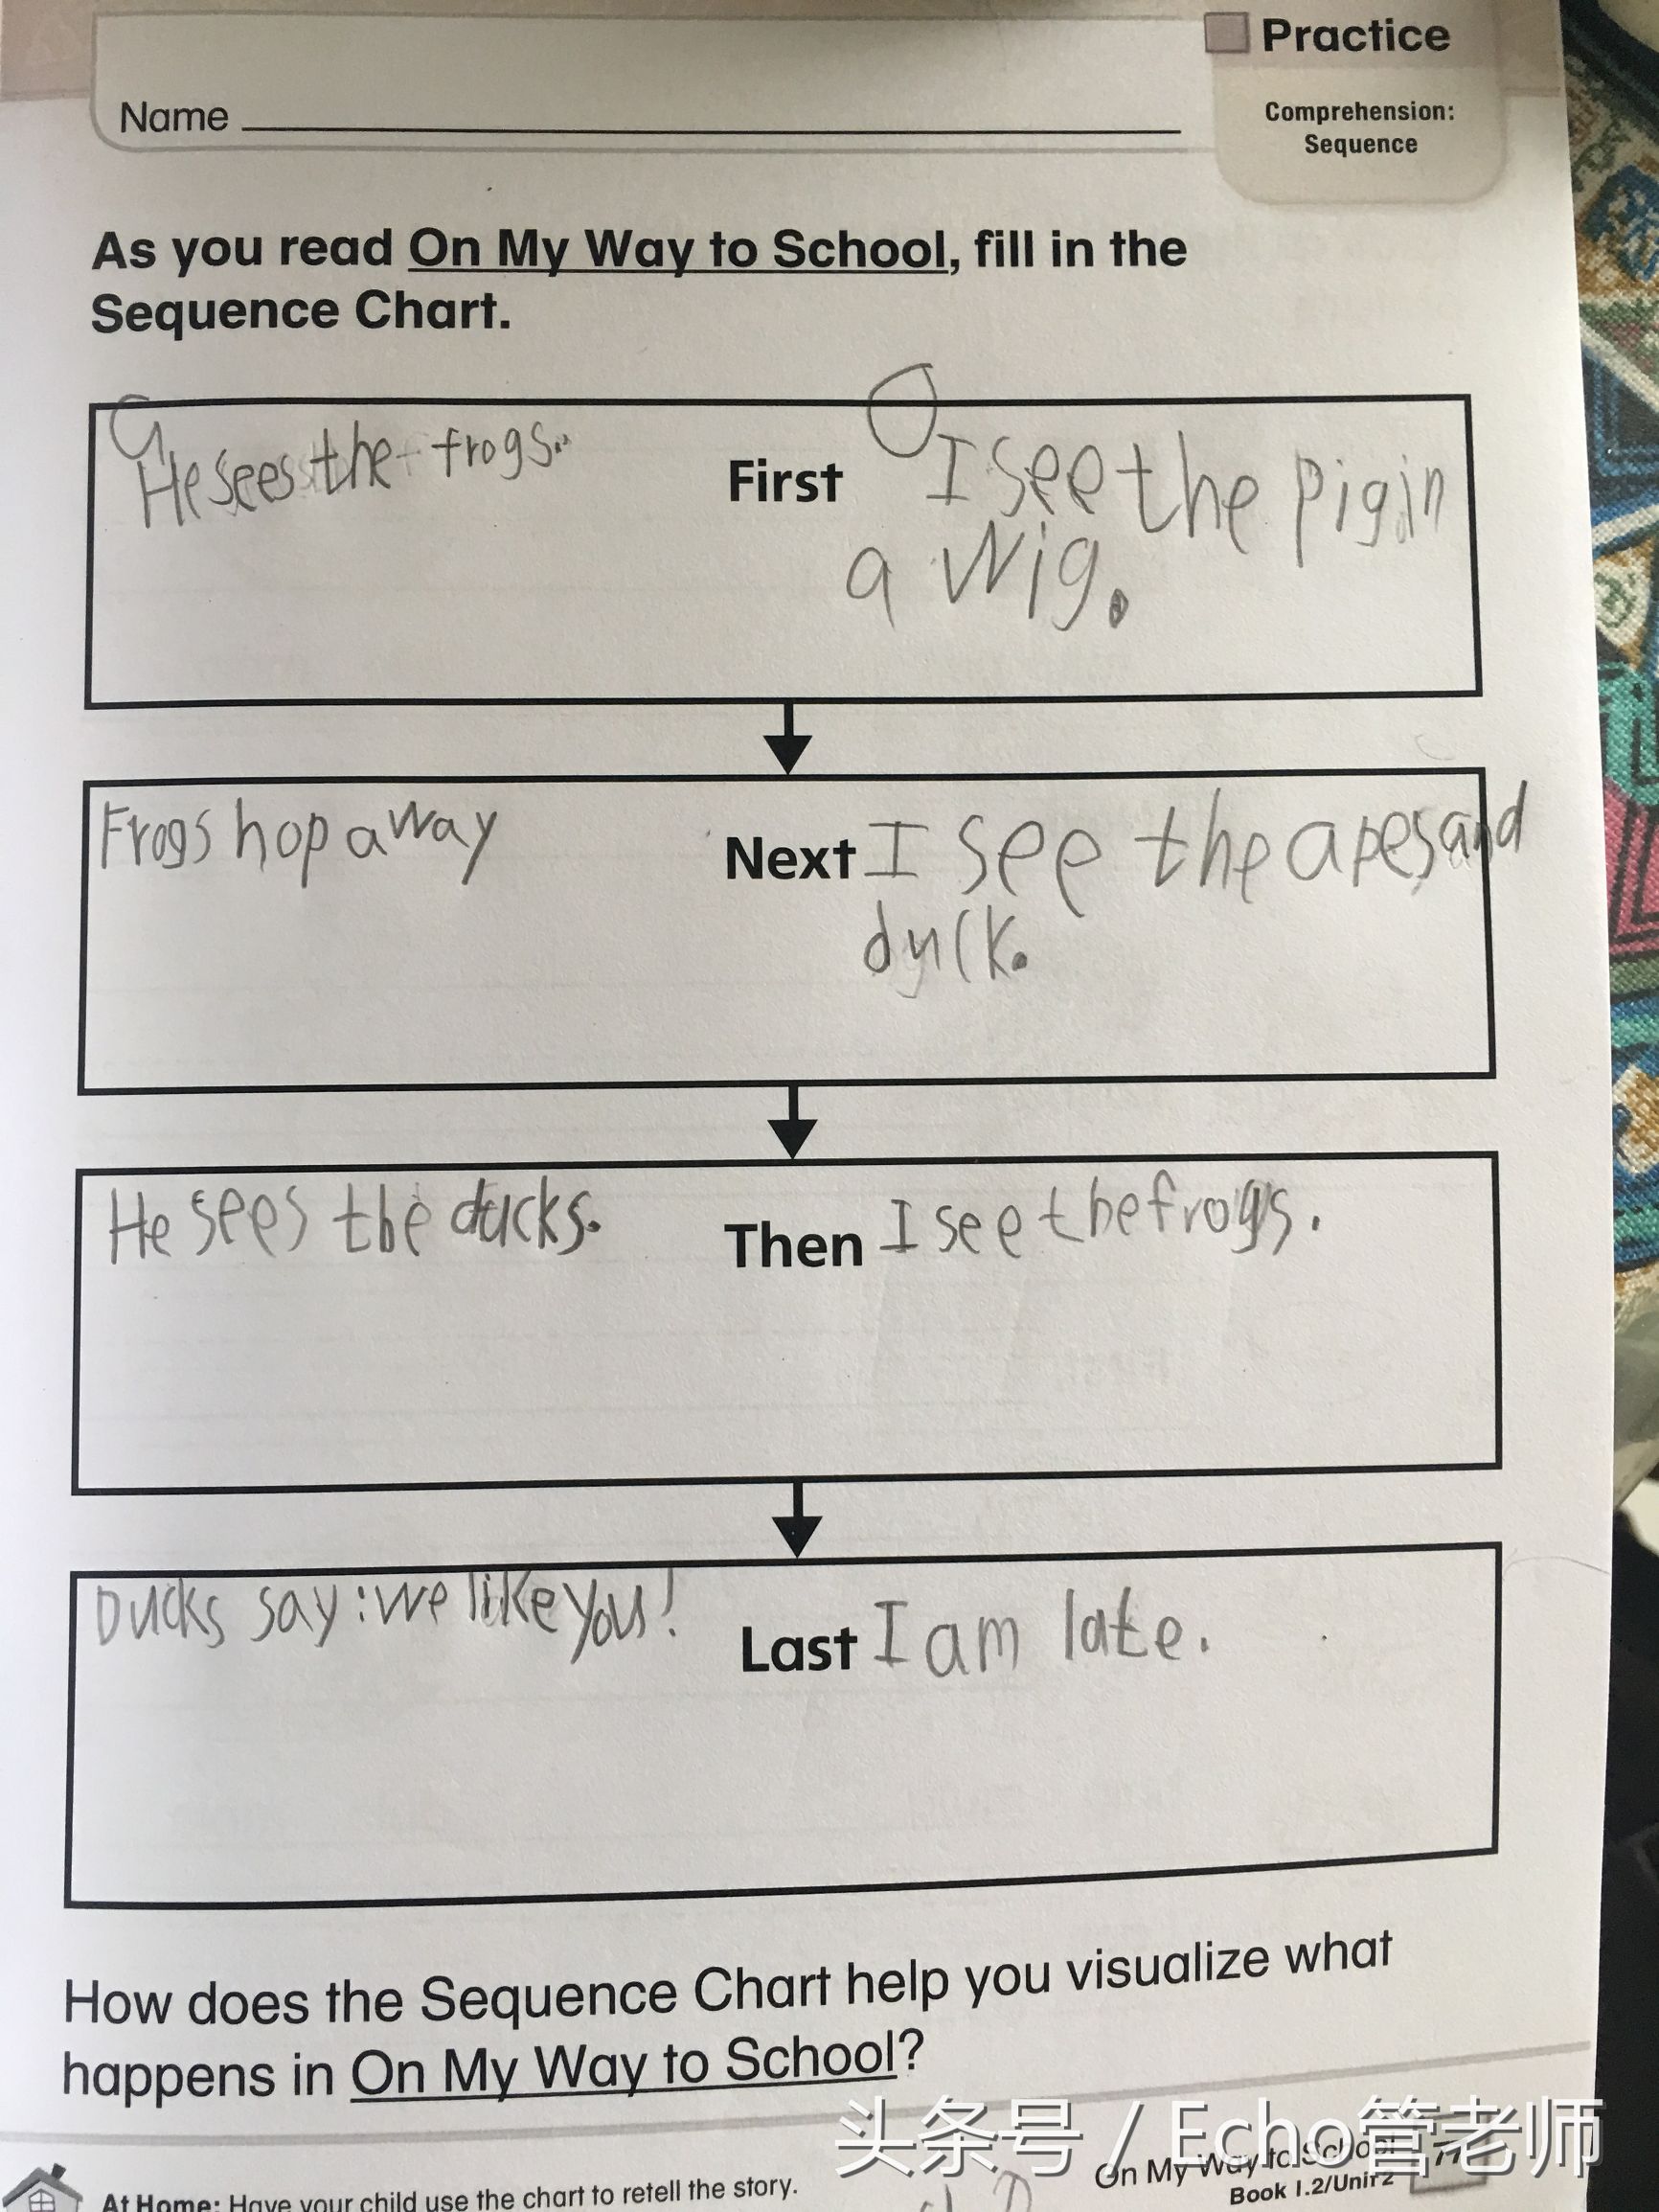 Practice
Name
Comprehension:
Sequence
As you read On My Way to School, fill in the
Sequence Chart.
He sees the frogs.
First I see the pig in
a wig.
Frogs hop away
Next I see the apes and
duck.
He sees the ducks.
Then I see the frogs.
Ducks say: we like you!
Last I am late.
How does the Sequence Chart help you visualize what
happens in On My Way to School?
头条号 / Echo管老师
At Home: Have your child use the chart to retell the story.
On My Way to School
Book 1.2/Unit 2